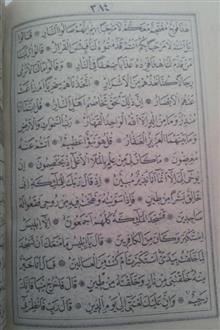 هٰذَا فَوْجٌ مُقْتَحِمٌ مَعَكُمْ لَا مَرْحَبًا بِهِمْ اِنَّهُمْ صَالُوا النَّارِ قَالُوا
بَلْ اَنْتُمْ لَا مَرْحَبًا بِكُمْ اَنْتُمْ قَدَّمْتُمُوهُ لَنَا فَبِئْسَ الْقَرَارُ قَالُوا رَبَّنَا
مَنْ قَدَّمَ لَنَا هٰذَا فَزِدْهُ عَذَابًا ضِعْفًا فِي النَّارِ وَقَالُوا مَا لَنَا لَا نَرٰى
رِجَالًا كُنَّا نَعُدُّهُمْ مِنَ الْاَشْرَارِ اَتَّخَذْنَاهُمْ سِخْرِيًّا اَمْ زَاغَتْ
عَنْهُمُ الْاَبْصَارُ اِنَّ ذٰلِكَ لَحَقٌّ تَخَاصُمُ اَهْلِ النَّارِ قُلْ اِنَّمَا اَنَا
مُنْذِرٌ وَمَا مِنْ اِلٰهٍ اِلَّا اللّٰهُ الْوَاحِدُ الْقَهَّارُ رَبُّ السَّمٰوَاتِ وَالْاَرْضِ
وَمَا بَيْنَهُمَا الْعَزِيزُ الْغَفَّارُ قُلْ هُوَ نَبَؤٌا عَظِيمٌ اَنْتُمْ عَنْهُ
مُعْرِضُونَ مَا كَانَ لِيَ مِنْ عِلْمٍ بِالْمَلَاِ الْاَعْلٰى اِذْ يَخْتَصِمُونَ اِنْ
يُوحٰى اِلَيَّ اِلَّا اَنَّمَا اَنَا نَذِيرٌ مُبِينٌ اِذْ قَالَ رَبُّكَ لِلْمَلٰئِكَةِ اِنِّي
خَالِقٌ بَشَرًا مِنْ طِينٍ فَاِذَا سَوَّيْتُهُ وَنَفَخْتُ فِيهِ مِنْ رُوحِي فَقَعُوا لَهُ
سَاجِدِينَ فَسَجَدَ الْمَلٰئِكَةُ كُلُّهُمْ اَجْمَعُونَ اِلَّا اِبْلِيسَ
اِسْتَكْبَرَ وَكَانَ مِنَ الْكَافِرِينَ قَالَ يَا اِبْلِيسُ مَا مَنَعَكَ اَنْ تَسْجُدَ
لِمَا خَلَقْتُ بِيَدَيَّ اَسْتَكْبَرْتَ اَمْ كُنْتَ مِنَ الْعَالِينَ قَالَ اَنَا خَيْرٌ
مِنْهُ خَلَقْتَنِي مِنْ نَارٍ وَخَلَقْتَهُ مِنْ طِينٍ قَالَ فَاخْرُجْ مِنْهَا فَاِنَّكَ
رَجِيمٌ وَاِنَّ عَلَيْكَ لَعْنَتِي اِلٰى يَوْمِ الدِّينِ قَالَ رَبِّ فَاَنْظِرْنِي